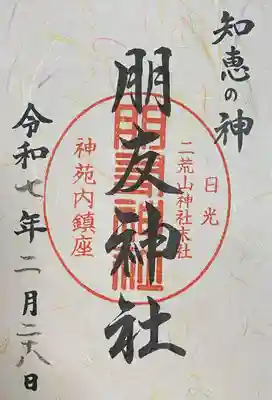 知恵の神
日光
二荒山神社末社
朋友神社
朋友神社
神苑内鎮座
令和七年二月二十八日